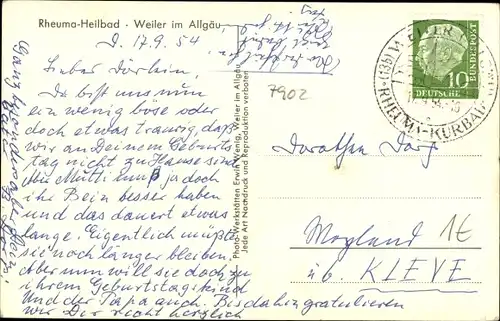 Rheuma-Heilbad · Weiler im Allgäu
D. 17.9.54
Lieber Dörlein,
Du bist uns nun
ein wenig böse oder
doch etwas traurig, daß
wir an Deinem Geburts
tag nicht zu Hause sind.
Die Mutti muß ja doch
ihr Bein besser haben
und das dauert etwas
lange. Eigentlich müßte
sie noch länger bleiben,
aber nun will sie doch zu
ihrem Geburtstagskind
und der Papa auch. Bis dahin gratulieren
wir Dir recht herzlich
Ganz besonders Dein
Photo-Werkstätten Erwin Wenig, Weiler im Allgäu
Jede Art Nachdruck und Reproduktion verboten
7902
WEILER (ALLGÄU)
(13b)
RHEUMA-KURBAD
10
DEUTSCHE
BUNDESPOST
Dorothea
Moyland
üb. KLEVE
1€